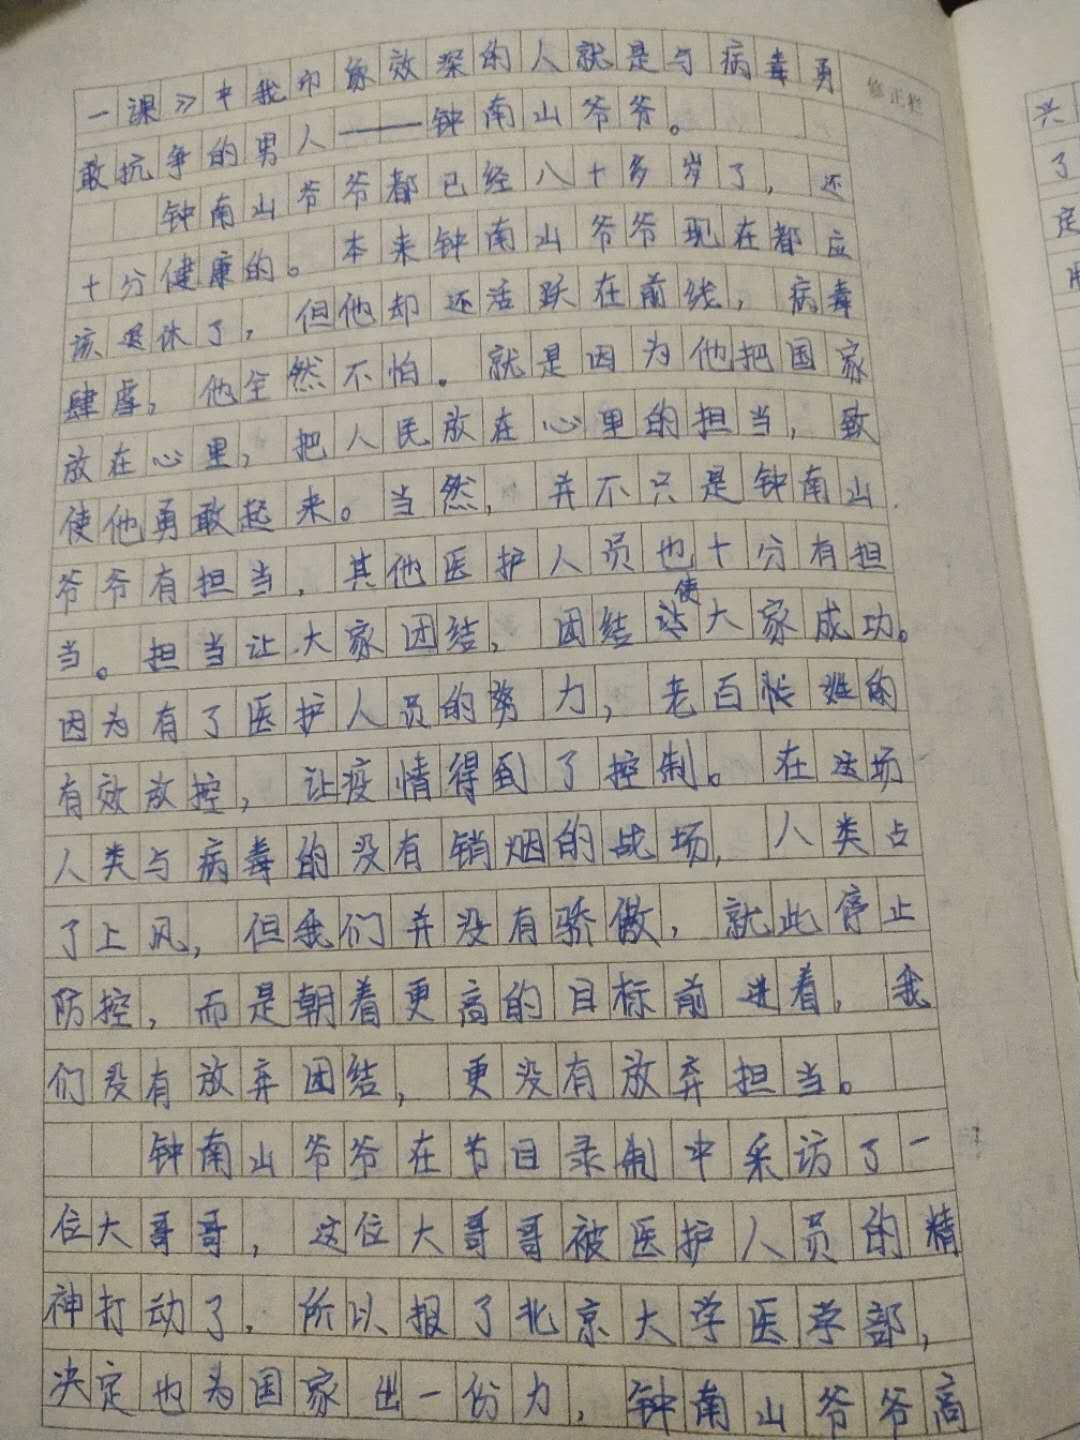 一课》中我印象效深的人就是与病毒勇
修正栏
敢抗争的男人——钟南山爷爷。
钟南山爷爷都已经八十多岁了，还
十分健康的。本来钟南山爷爷现在都应
该退休了，但他却还活跃在前线，病毒
肆虐，他全然不怕。就是因为他把国家
放在心里，把人民放在心里的担当，致
使他勇敢起来。当然，并不只是钟南山
爷爷有担当，其他医护人员也十分有担
当。担当让大家团结，团结使大家成功。
因为有了医护人员的努力，老百姓的
有效放控，让疫情得到了控制。在这场
人类与病毒的没有销烟的战场，人类占
了上风，但我们并没有骄傲，就此停止
防控，而是朝着更高的目标前进着，我
们没有放弃团结，更没有放弃担当。
钟南山爷爷在节目录制中采访了一
位大哥哥，这位大哥哥被医护人员的精
神打动了，所以报了北京大学医学部，
决定也为国家出一份力，钟南山爷爷高
兴
了
定